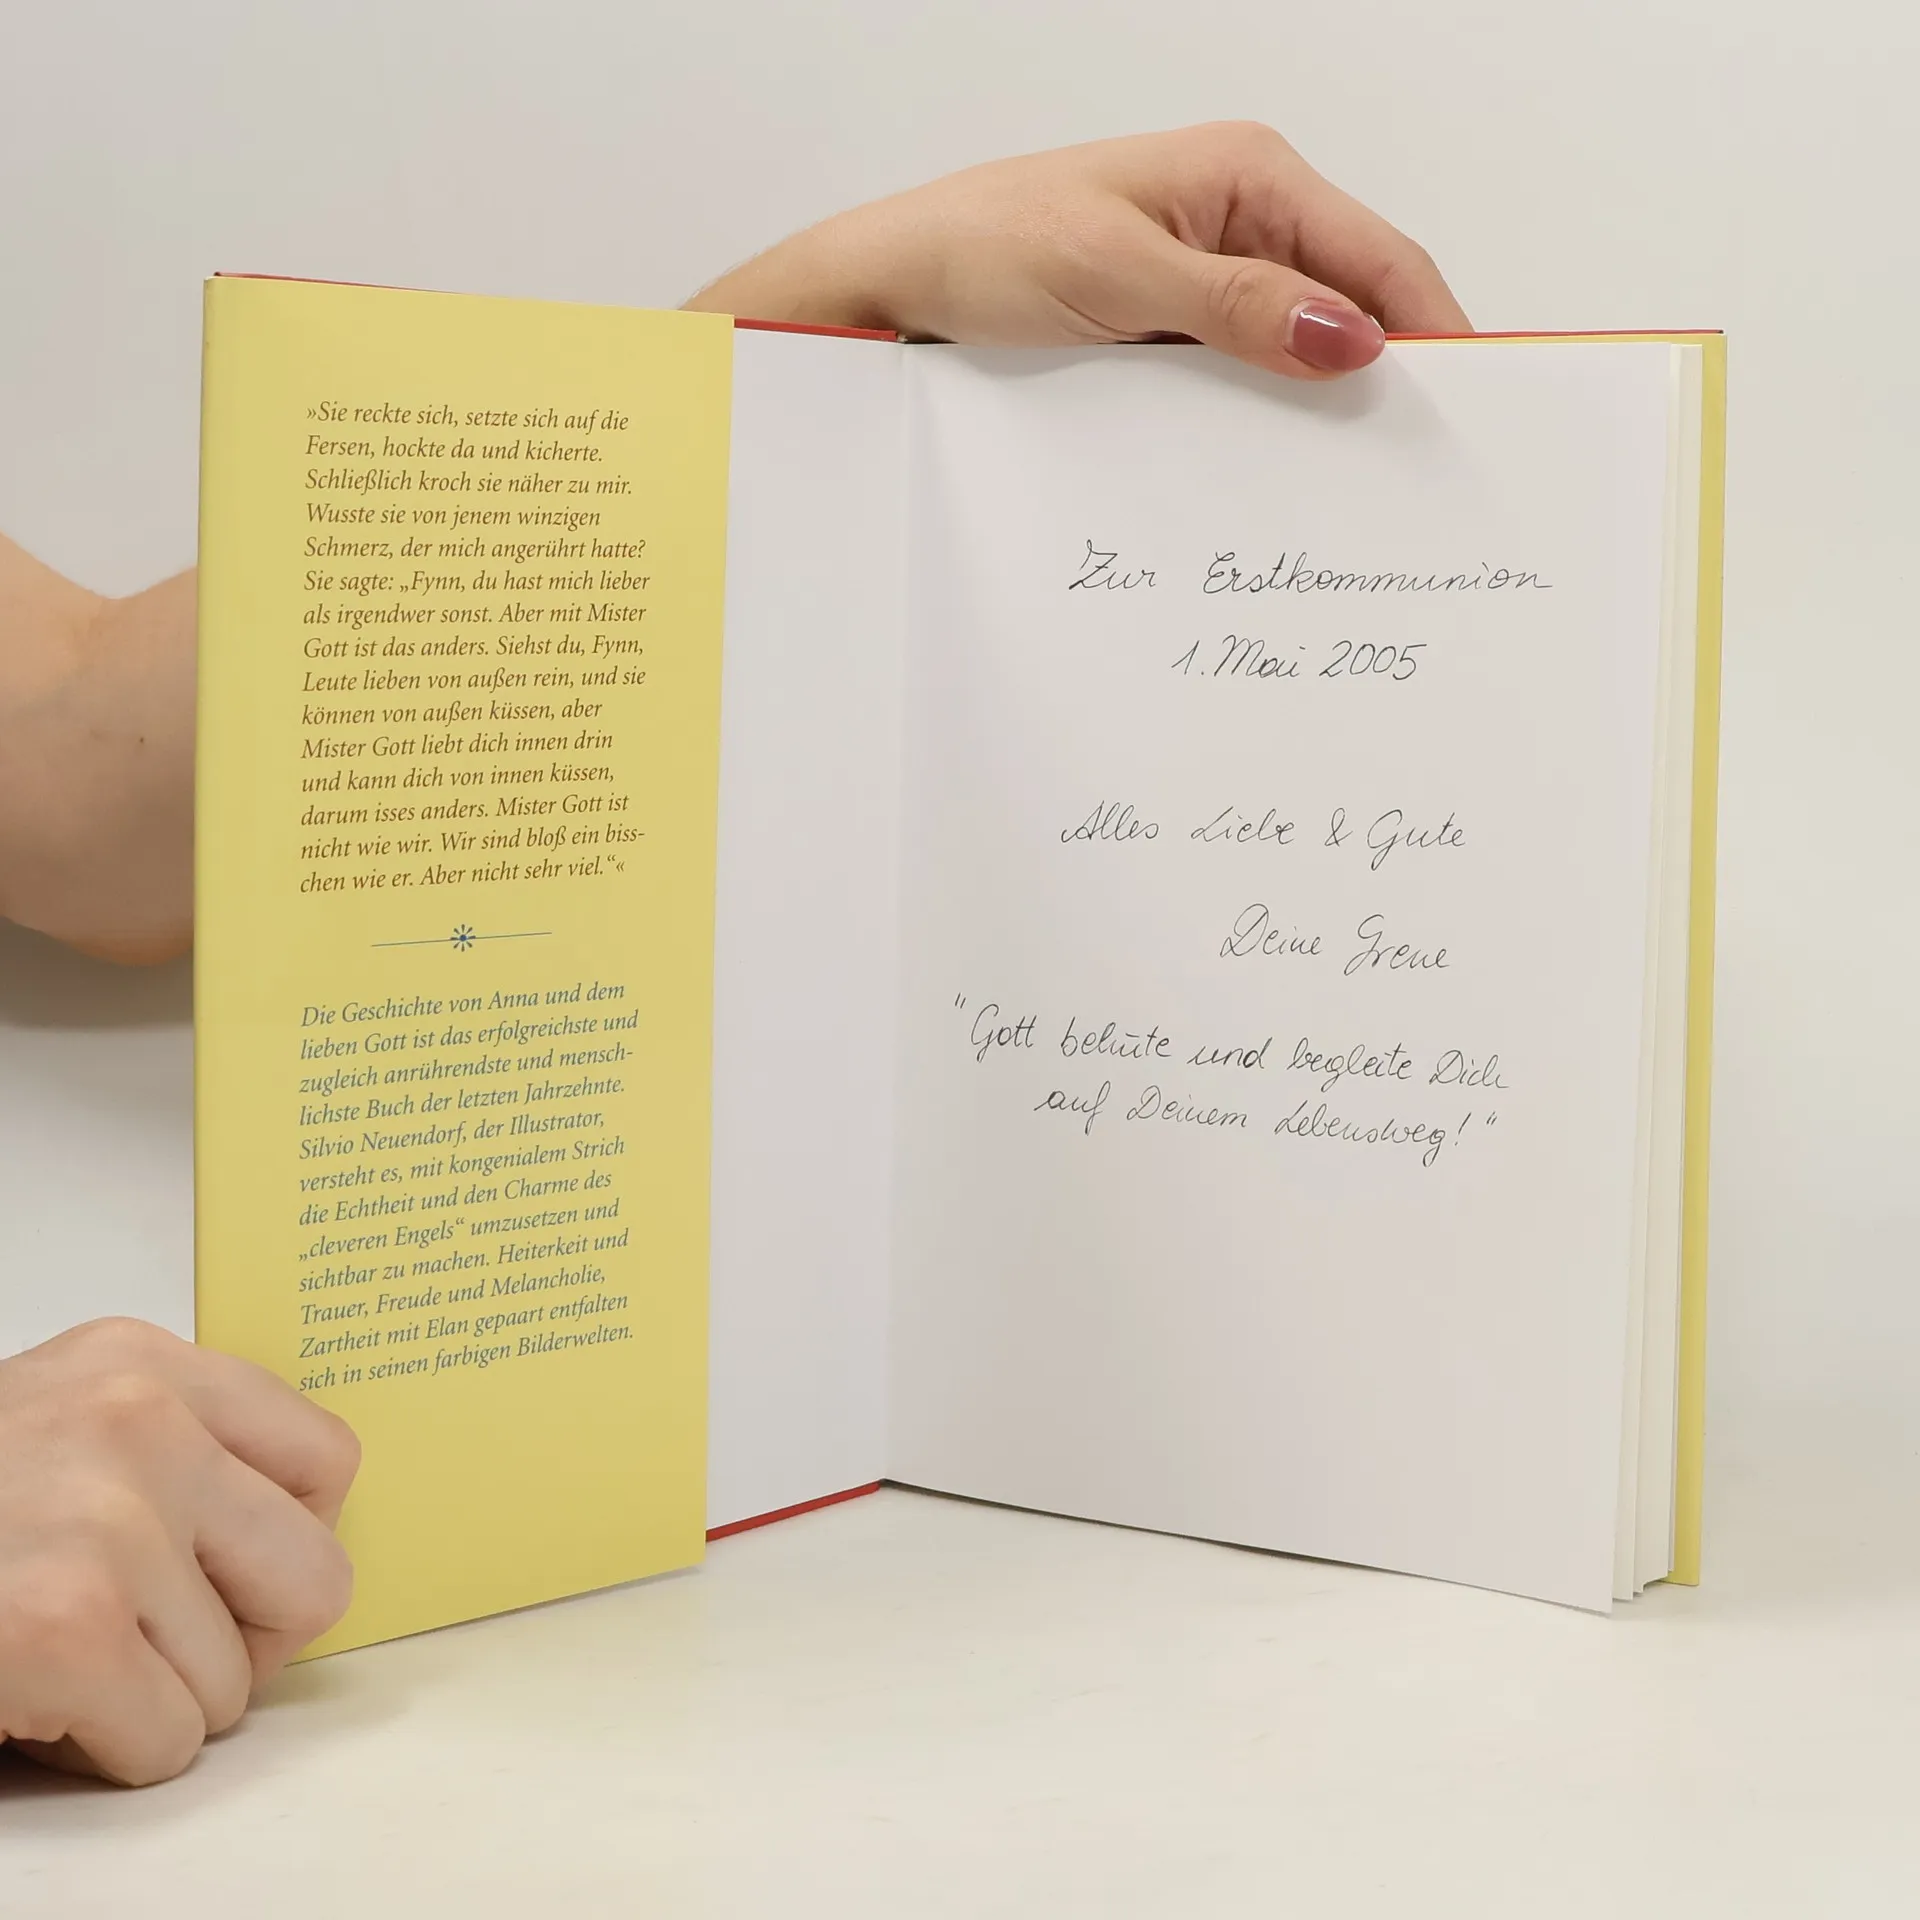 »Sie reckte sich, setzte sich auf die
Fersen, hockte da und kicherte.
Schließlich kroch sie näher zu mir.
Wusste sie von jenem winzigen
Schmerz, der mich angerührt hatte?
Sie sagte: „Fynn, du hast mich lieber
als irgendwer sonst. Aber mit Mister
Gott ist das anders. Siehst du, Fynn,
Leute lieben von außen rein, und sie
können von außen küssen, aber
Mister Gott liebt dich innen drin
und kann dich von innen küssen,
darum isses anders. Mister Gott ist
nicht wie wir. Wir sind bloß ein biss-
chen wie er. Aber nicht sehr viel.“«
Die Geschichte von Anna und dem
lieben Gott ist das erfolgreichste und
zugleich anrührendste und mensch-
lichste Buch der letzten Jahrzehnte.
Silvio Neuendorf, der Illustrator,
versteht es, mit kongenialem Strich
die Echtheit und den Charme des
„cleveren Engels“ umzusetzen und
sichtbar zu machen. Heiterkeit und
Trauer, Freude und Melancholie,
Zartheit mit Elan gepaart entfalten
sich in seinen farbigen Bilderwelten.
Zur Erstkommunion
1. Mai 2005
Alles Liebe & Gute
Deine
"Gott behüte und begleite Dich
auf Deinem Lebensweg!"